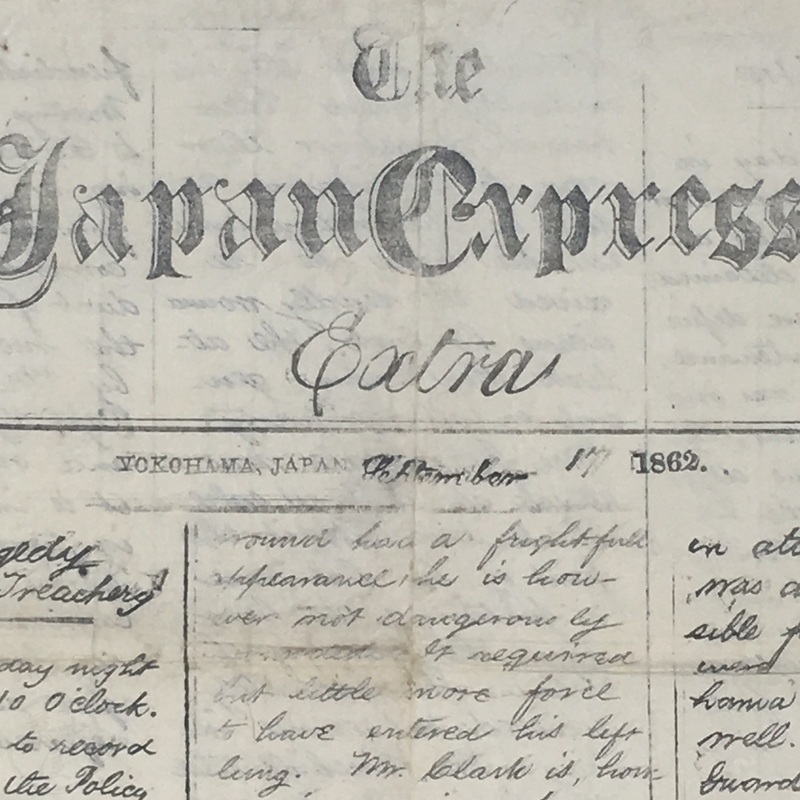 The
Japan Express
Extra
YOKOHAMA, JAPAN September 17 1862.
gedy
Treachery
day night
10 O'clock.
to record
the Policy
wound had a frightfull
appearance, he is how-
ever not dangerously
It required
but little more force
to have entered his left
lung. Mr. Clark is, how-
in att
was a
sible f
were
hama
well.
Guard